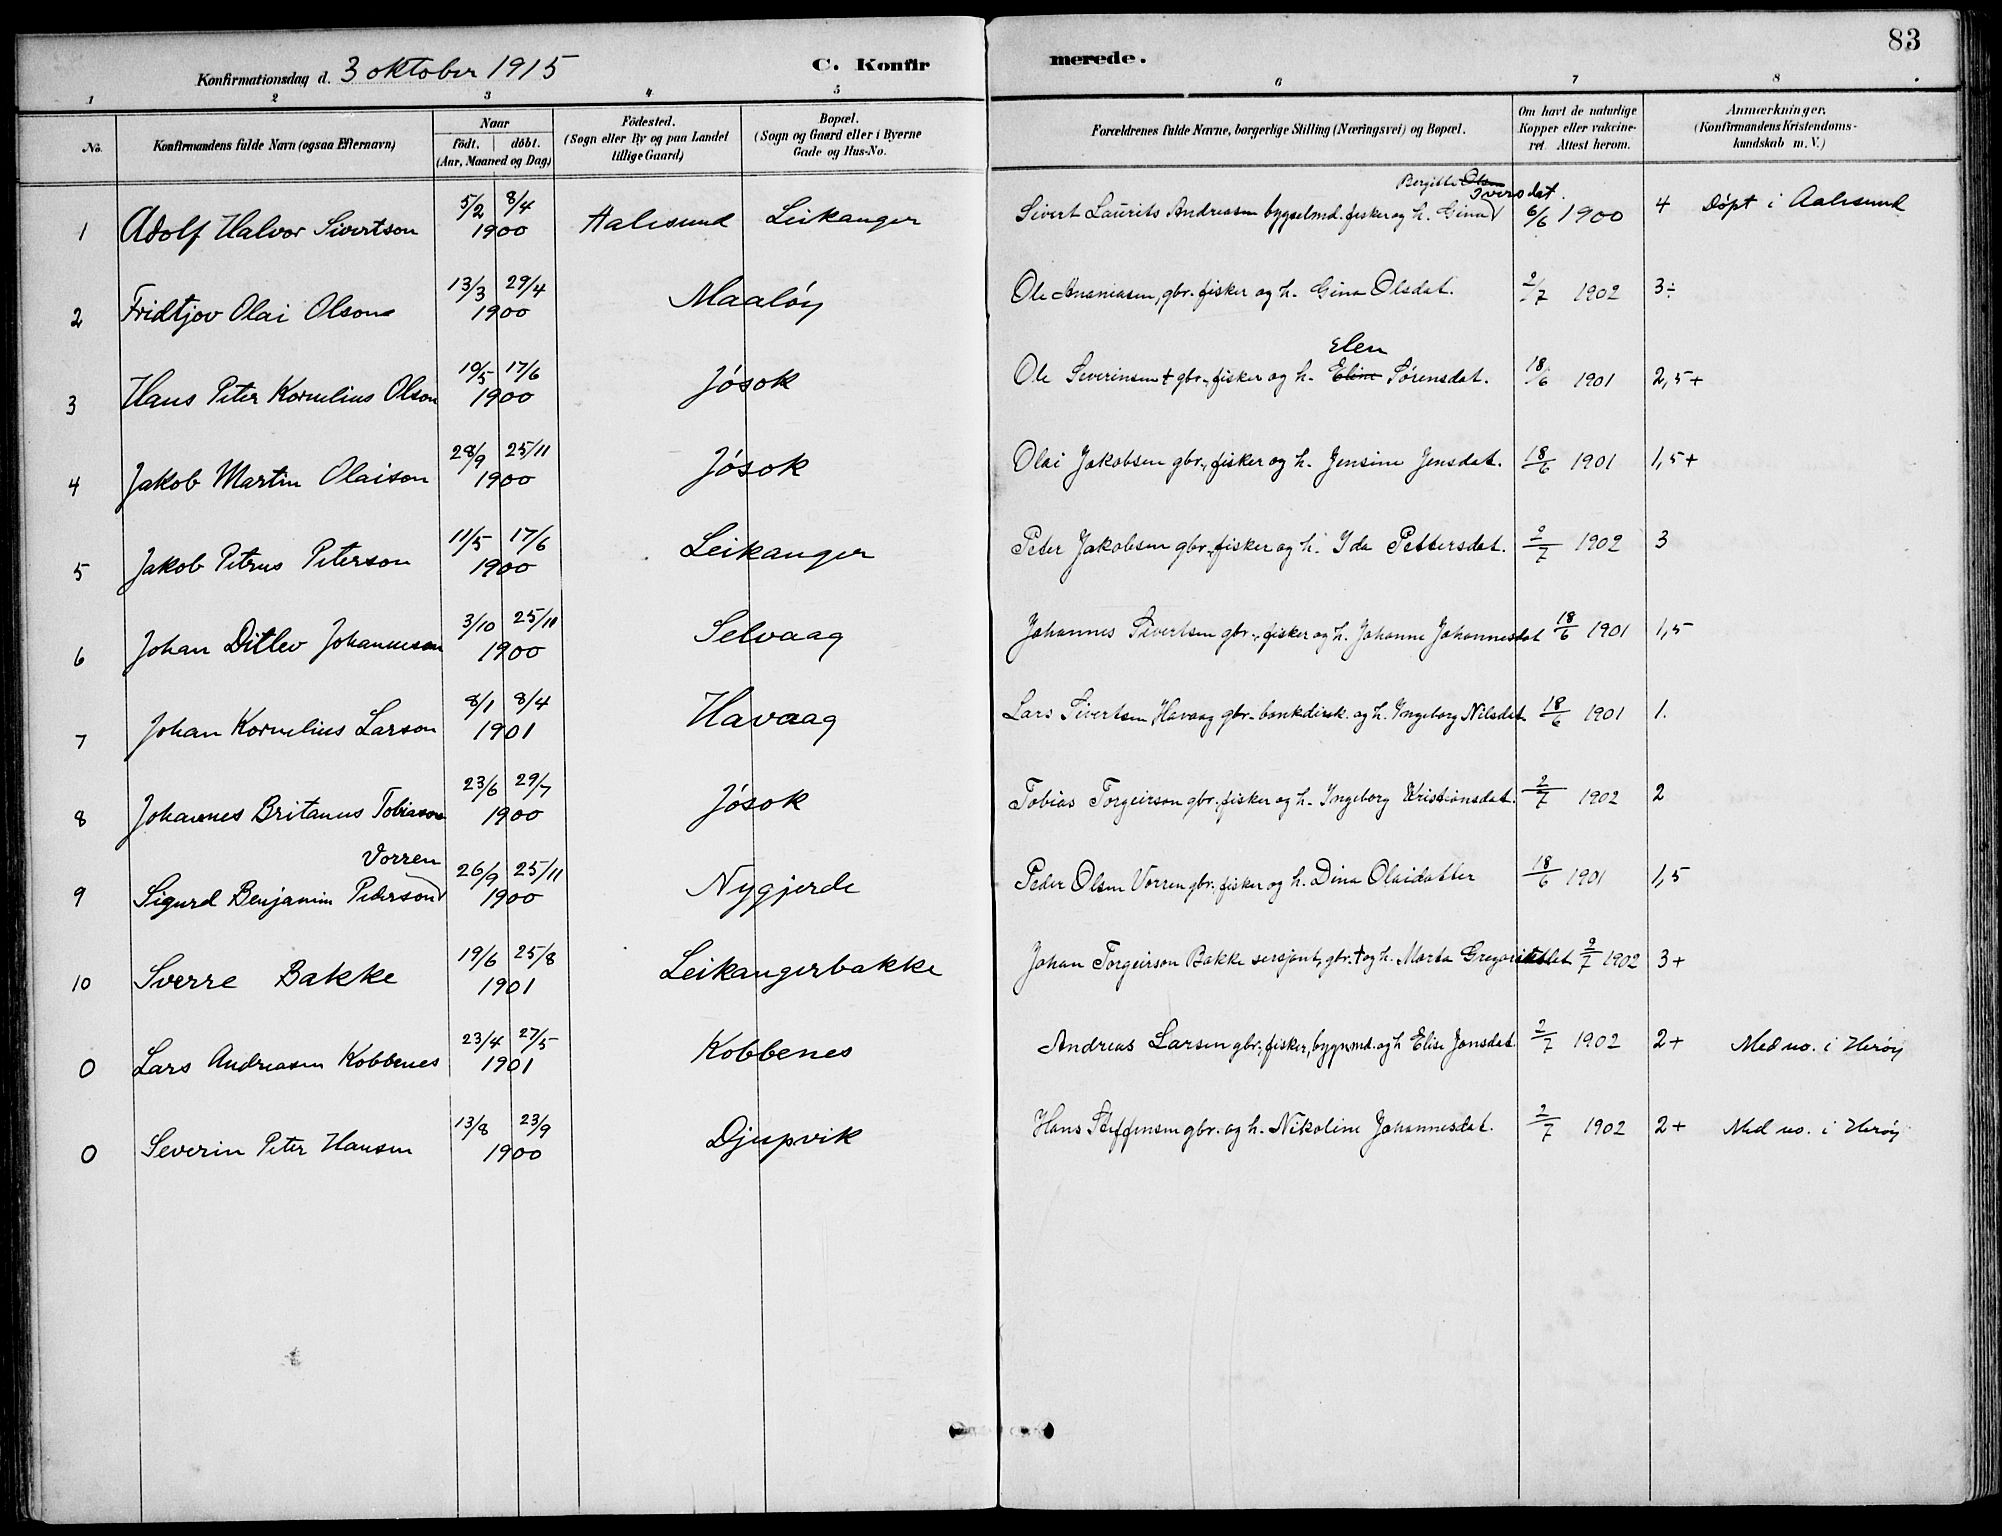 83
Konfirmationsdag d. 3 oktober 1915 C. Konfirmerede.
1 2 3 4 5 6 7 8
No. Konfirmandens fulde Navn (ogsaa Efternavn) Naar födt. döbt. (Aar, Maaned og Dag) Födested. (Sogn eller By og paa Landet tillige Gaard) Bopæl. (Sogn og Gaard eller i Byerne Gade og Hus-No. Forældrenes fulde Navne, borgerlige Stilling (Næringsvei) og Bopæl. Om havt de naturlige Kopper eller vakcineret. Attest herom. Anmærkninger. (Konfirmandens Kristendomskundskab m. V.)
Bergitte Olsen Iversdat.
1 Adolf Halvor Sivertson 5/2 8/4 1900 Aalesund Leikanger Sivert Laurits Andreasen bygselmd. fisker og h. Gina 6/6 1900 4 Døpt i Aalesund
2 Fridtjov Olai Olson 13/3 29/4 1900 Maaløy Ole Ananiasen, gbr. fisker og h. Gina Olsdat. 2/7 1902 3÷
Elen
3 Hans Peter Kornelius Olson 10/5 17/6 1900 Jøsok Ole Severinsen + gbr., fisker og h. Eline Sørensdat. 18/6 1901 2,5+
4 Jakob Martin Olaison 28/9 25/11 1900 Jøsok Olai Jakobsen gbr., fisker og h. Jensine Jensdat. 18/6 1901 1,5+
5 Jakob Petrus Peterson 11/5 17/6 1900 Leikanger Peter Jakobsen gbr., fisker og h. Ida Pettersdat. 2/7 1902 3
6 Johan Ditlev Johanneson 3/10 25/11 1900 Selvaag Johannes Sivertsen gbr., fisker og h. Johanne Johannesdat 18/6 1901 1,5
7 Johan Kornelius Larson 8/1 8/4 1901 Havaag Lars Sivertsen Havaag gbr. bankdirek. og h. Ingeborg Nilsdat 18/6 1901 1.
8 Johannes Britanus Tobiason 23/6 29/7 1900 Jøsok Tobias Torgeirson gbr., fisker og h. Ingeborg Kristiansdat. 2/7 1902 2
Vorren
9 Sigurd Benjamin Pederson 26/9 25/11 1900 Nygjerde Peder Olsen Vorren gbr., fisker og h. Dina Olaidatter 18/6 1901 1,5
10 Sverre Bakke 19/6 25/8 1901 Leikangerbakke Johan Torgeirson Bakke sersjant, gbr. + og h. Marta 2/7 1902 3+
0 Lars Andreasen Kobbenes 23/4 27/5 1901 Kobbenes Andreas Larsen gbr., fisker, bygnmd. og h Elise Jonsdat. 2/7 1902 2+ Med no. i Herøy
0 Severin Peter Hansen 13/8 23/9 1900 Djupvik Hans Steffensen gbr. og h. Nikoline Johannesdat. 2/7 1902 2+ Med no. i Herøy